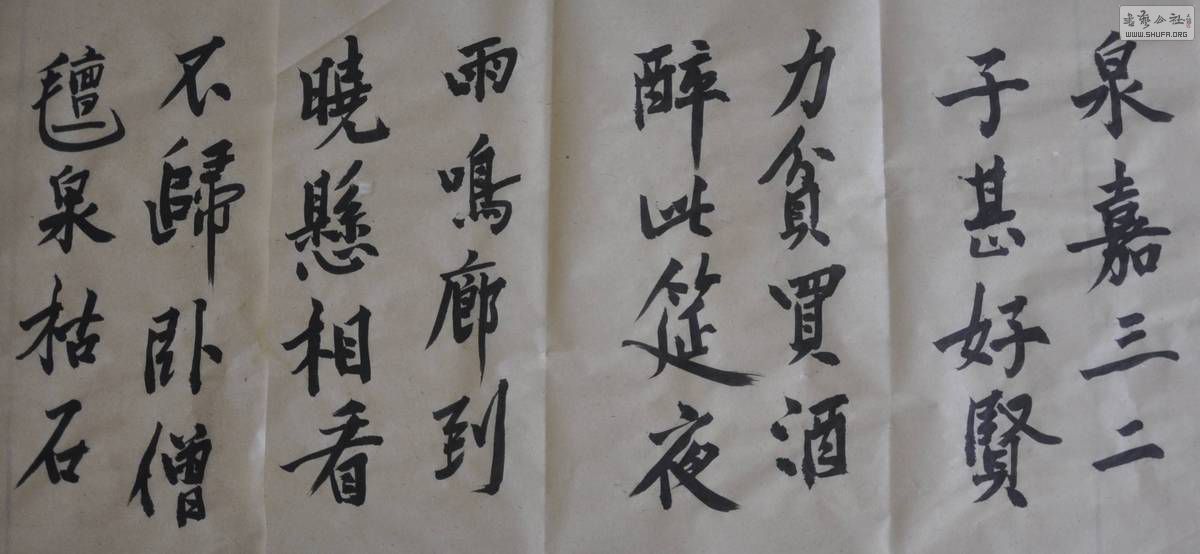 泉嘉三二
子甚好賢
力貧買酒
醉此筵夜
雨鳴廊到
曉懸相看
不歸卧僧
氊泉枯石
書藝公社
WWW.SHUFA.ORG